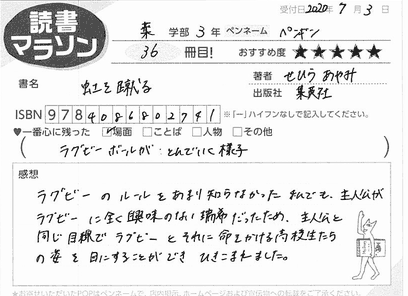 受付日2020年7月3日
読書
マラソン
薬 学部 3年 ペンネーム ペンギン
36 冊目! おすすめ度 ★★★★★
書名 虹を蹴る
著者 せひらあやみ
出版社 集英社
ISBN 9784086802741 ※「-」ハイフンなしで記入してください。
♥一番心に残った ☑場面 □ことば □人物 □その他
(ラグビーボールがとんでいく様子)
感想
ラグビーのルールをあまり知らなかったんでも、主人公が
ラグビーに全く興味のない瑞希だったため、主人公と
同じ目線でラグビーとそれに命をかける高校生たち
の姿を目にすることができ ひきこまれました。